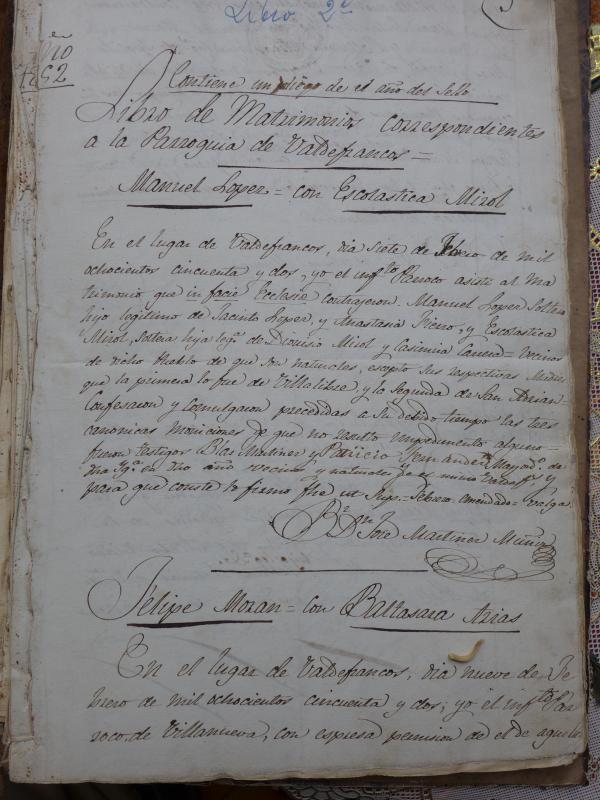 Libro 2º
Contiene un pliego de el año dos Sello
Libro de Matrimonios correspondientes
a la Parroquia de Valdefrancos =
Manuel Lopez = con Escolastica Mirol
En el lugar de Valdefrancos, dia siete de Febrero de mil
ochocientos cincuenta y dos, yo el infto Parroco asisti al Ma
trimonio que in facie Eclesie contrajeron Manuel Lopez Soltero
hijo legitimo de Jacinto Lopez, y Anastasia y Escolastica
Mirol, Soltera hija legª de Dionisio Mirol y Casimira = Vecinos
de dicho Pueblo de que son naturales, esepto sus respectivas Madres
que la primera lo fue de Villalibre, y la Segunda de San Adrian
Confesaron y Comulgaron precedidas a su debido tiempo las tres
canonicas moniciones de que no resulto impedimento alguno =
fueron testigos Blas Martinez y Patricio Fernandez Mayordº de
dha Ygª en dho año vecinos y naturales y
para que conste lo firmo fha ut Supª = Febrero = emendado = Valga
Br Dn Jose Martinez Muñiz
Felipe Moran = con Baltasara Arias
En el lugar de Valdefrancos, dia nueve de Fe
brero de mil ochocientos cincuenta y dos; yo el infto Par
roco de Villanueva, con espresa permision de el de aquel